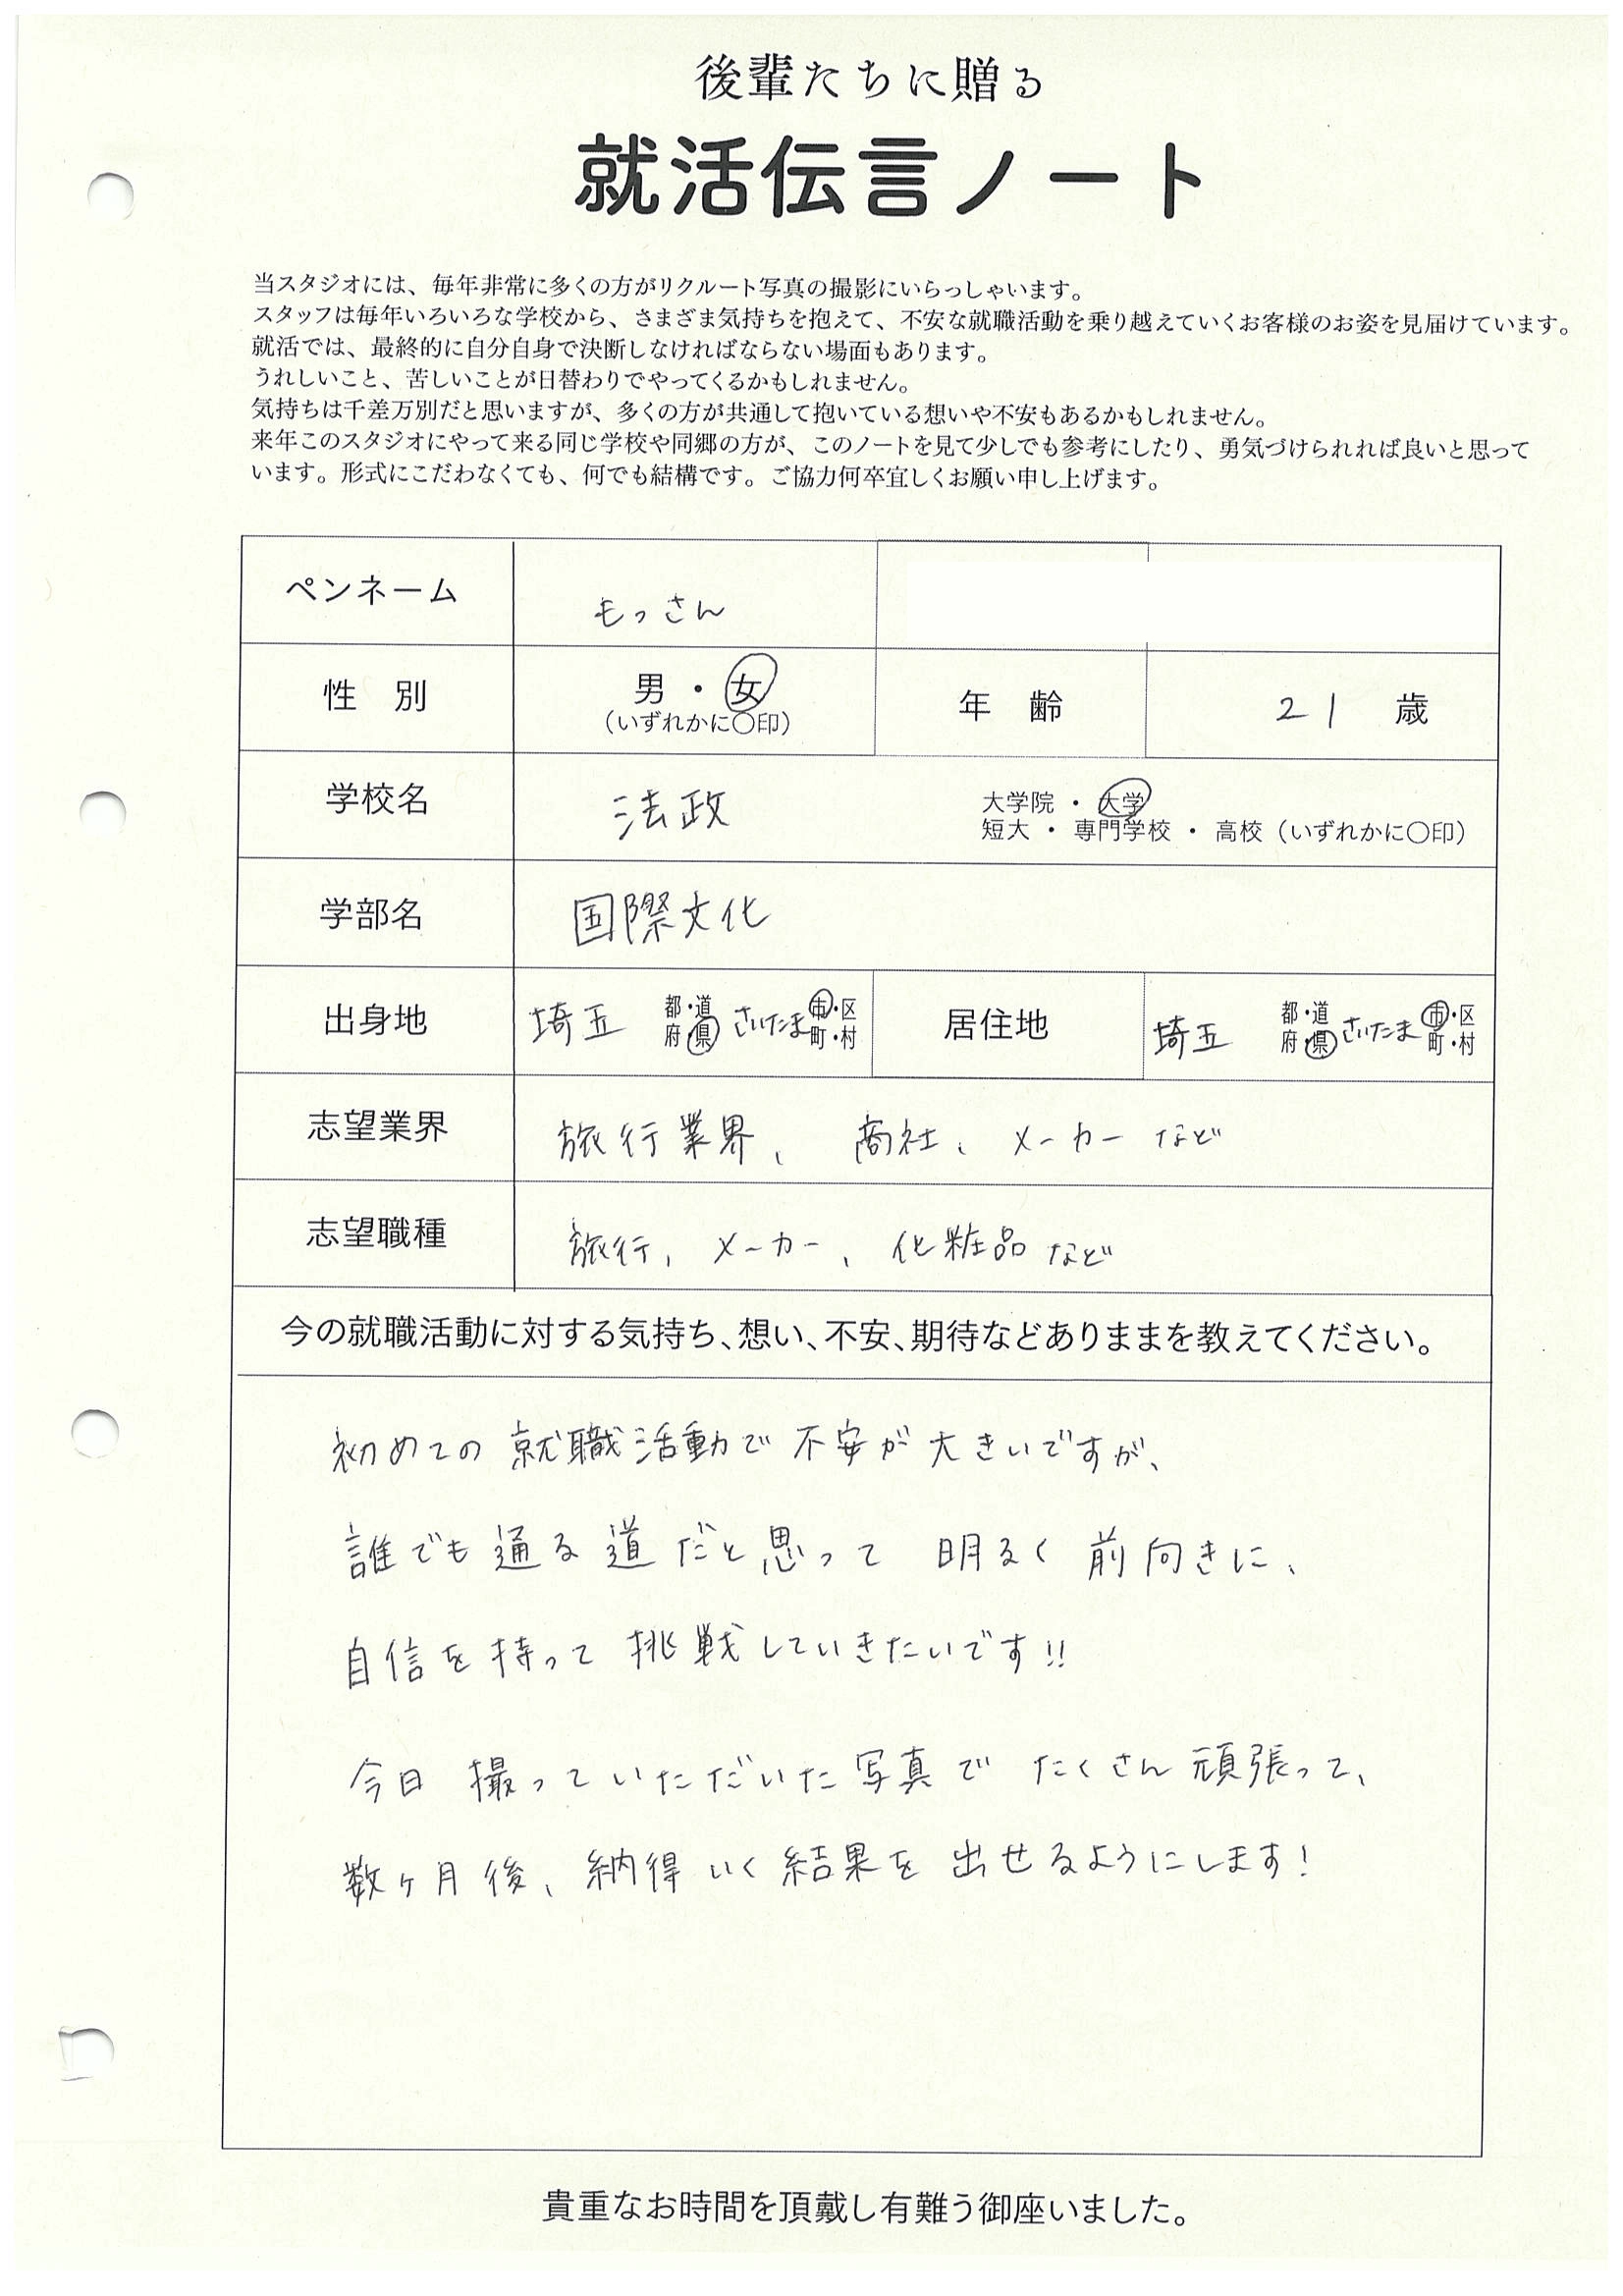 後輩たちに贈る
就活伝言ノート
当スタジオには、毎年非常に多くの方がリクルート写真の撮影にいらっしゃいます。
スタッフは毎年いろいろな学校から、さまざま気持ちを抱えて、不安な就職活動を乗り越えていくお客様のお姿を見届けています。
就活では、最終的に自分自身で決断しなければならない場面もあります。
うれしいこと、苦しいことが日替わりでやってくるかもしれません。
気持ちは千差万別だと思いますが、多くの方が共通して抱いている想いや不安もあるかもしれません。
来年このスタジオにやって来る同じ学校や同郷の方が、このノートを見て少しでも参考にしたり、勇気づけられれば良いと思って
います。形式にこだわなくても、何でも結構です。ご協力何卒宜しくお願い申し上げます。
ペンネーム もっさん
性 別 男 ・ 女 年 齢 21 歳
(いずれかに〇印)
学校名 法政 大学院 ・ 大学
短大 ・ 専門学校 ・ 高校(いずれかに〇印)
学部名 国際文化
出身地 埼玉 都・道府・県 さいたま 市・区町・村 居住地 埼玉 都・道府・県 さいたま 市・区町・村
志望業界 旅行業界、 商社、メーカー など
志望職種 旅行、メーカー、化粧品 など
今の就職活動に対する気持ち、想い、不安、期待などありままを教えてください。
初めての就職活動で不安が大きいですが、
誰でも通る道だと思って 明るく前向きに、
自信を持って挑戦していきたいです!!
今日撮っていただいた写真で たくさん頑張って、
数ヶ月後、納得いく結果を出せるようにします!
貴重なお時間を頂戴し有難う御座いました。